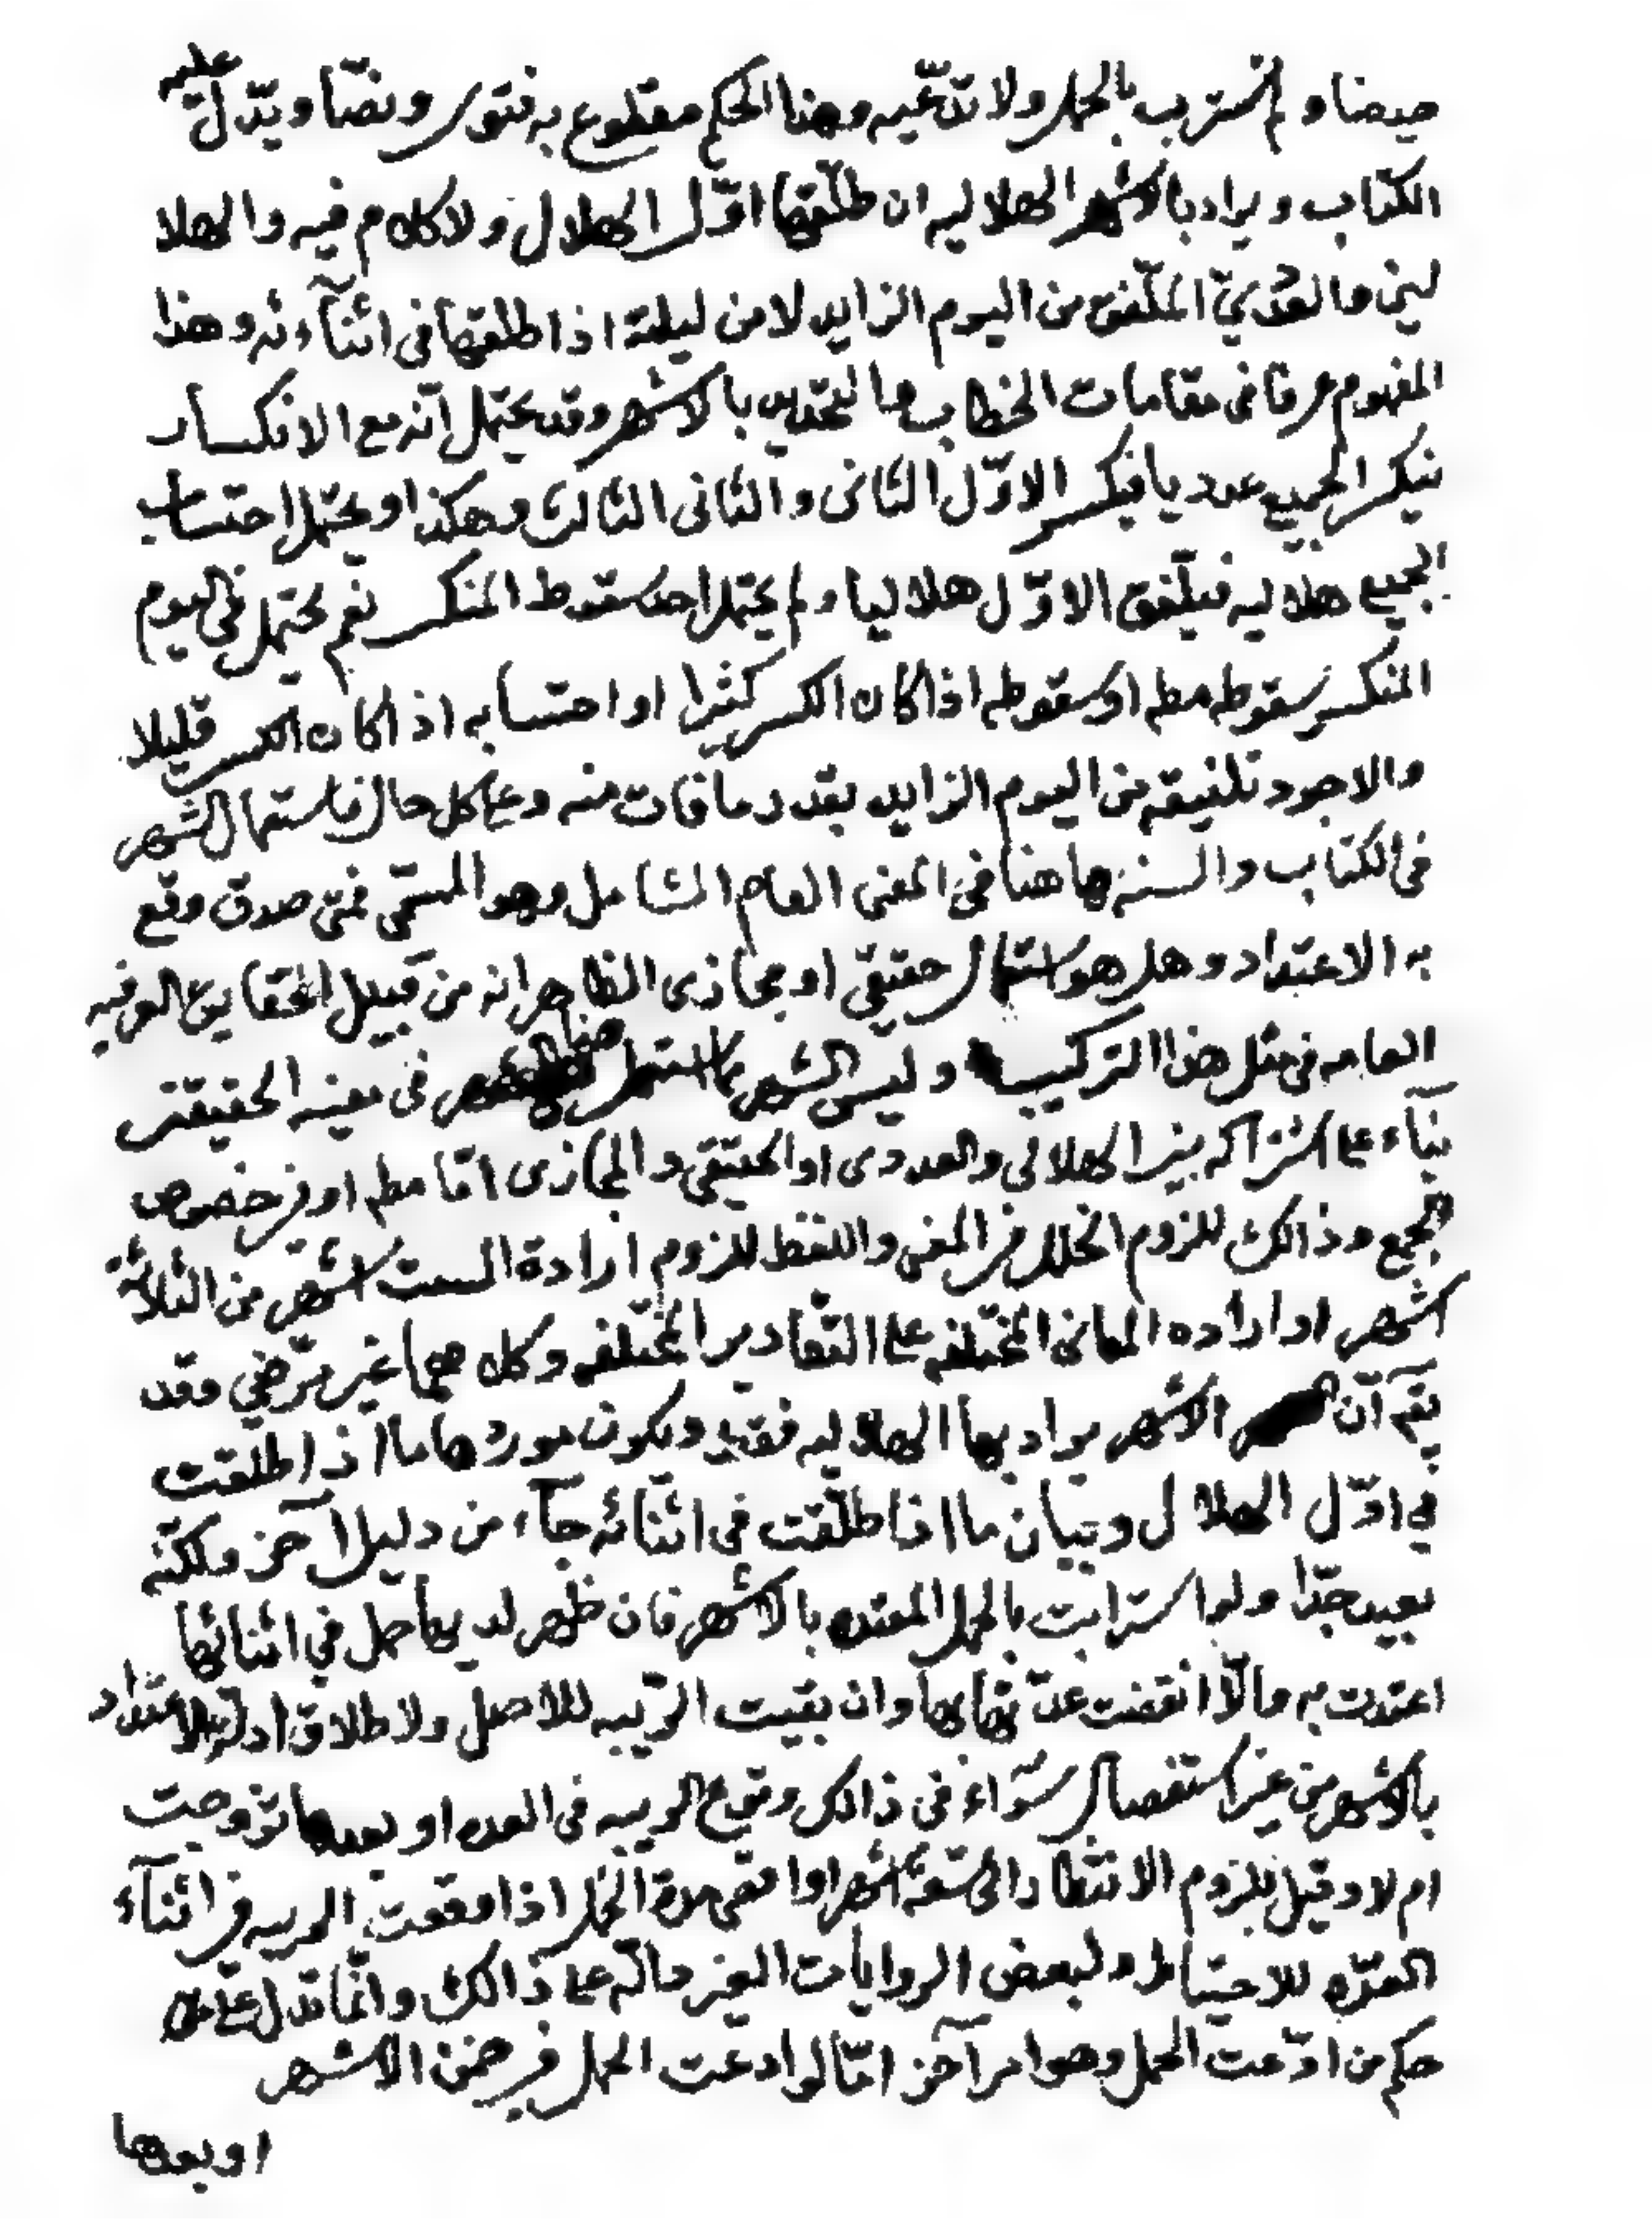 حيضا و لم تسترب بالحمل ولا تدّعيه وهذا الحكم مقطوع به فتوى ونصّا ويدّل عليه
الكتاب ويراد بالاشهر الهلاليه ان طلّقها اوّل الهلال ولا كلام فيه والهلا
ليين والعدديّ الملّفق من اليوم الزايد لا من ليلته اذا طلقها في اثنآءئه وهذا
المفهوم عرفا في مقامات الخطاب والتحديد بالاشهر وقد يحتمل انّه مع الانكسار
ينكسر الجميع عدديا فيكسر الاوّل الثانى والثانى الثالث وهكذا ويحتمل احتساب
الجميع هلاليه فيلّفق الاوّل هلاليا و لم يحتمل احد سقوط المنكسر نعم يحتمل في اليوم
المنكسر سقوطه مطه او سقوطه اذا كان الكسر كثيرا او احتسابه اذا كان الكسر قليلا
والاجود تلفيقه من اليوم الزايد بقدر ما فات منه وعلى كل حال فاستعمال الشهر
في الكتاب والسنه هاهنا في المعنى العام الشامل وهو المسمّى فمتى صدق وقع
به الاعتداد وهل هو استعمال حقيقي او مجازى الظاهر انه من قبيل الحقايق العرفيه
العامه في مثل هذا التركيب وليس الشهر مما استعمل هنا في معنييه الحقيقتين
بنآء على اشتراكه بين الهلالي والعددى او الحقيقي والمجازى امّا مطه او في خصوص
الجمع وذالك للزوم الخلل في المعنى واللفظ للزوم ارادة الست اشهر من الثلاثة
اشهر او اراده المعانى المختلفه على التقادير المختلفه وكل هما غير مرّضي وقد
يقم آنّ الاشهر يراد بها الهلاليه فقط ويكون موردها ما اذا طلقت
في اوّل الهلال وبيان ما اذا طلّقت في اثنائه جآء من دليل آخر ولكنّه
بعيد جدّا ولو استرابت بالحمل المعتده بالاشهر فان ظهر لديها حمل في اثنائها
اعتدت به والّا انقضت عدّتها بها وان بقيت الرّيبه للاصل ولاطلاق ادلة الاعتداد
بالاشهر من غير استفصال سوّاء في ذالك وقوع الريبه في العده او بعدها تزوجت
ام لا وقيل بلزوم الانتظار الى تسعة اشهر او اقصى مدة الحمل اذا وقعت الريبه في اثنآء
العدّه للاحتياط ولبعض الروايات الغير دالّه على ذالك وانّما تدل على
حكم من ادّعت الحمل وهو امر آخر امّا لو ادعت الحمل في ضمن الاشهر
او بعدها